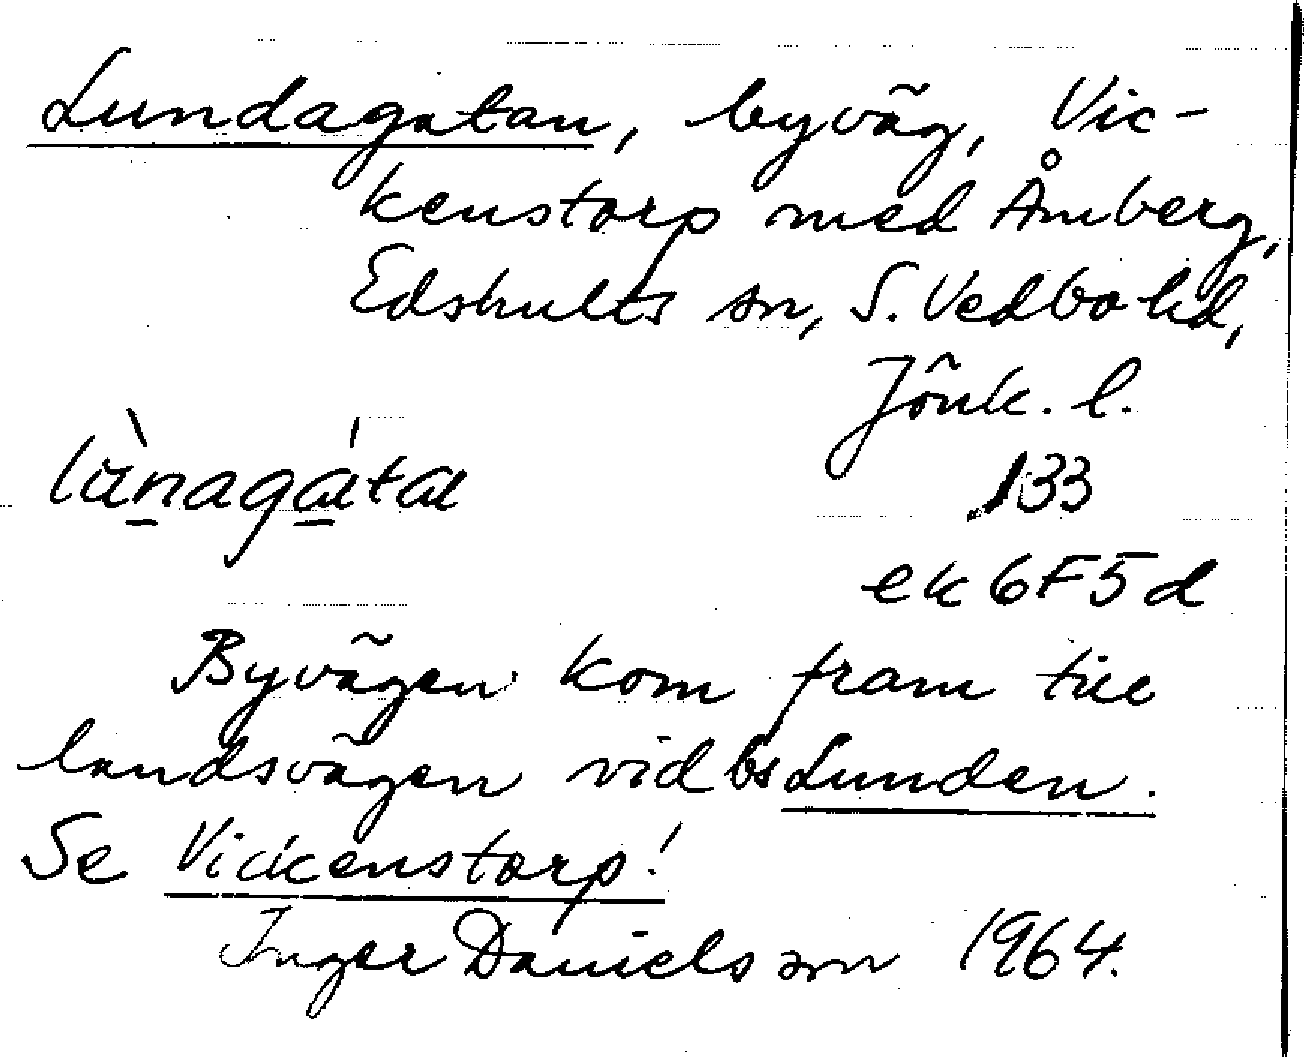 Lundagatan, byväg, Vic-
kenstorp med Åmberg,
Edshults sn, S. Vedbo hd,
Jönk. l.
133
ek 6F5d
Byvägen kom fram till
landsvägen vid bs Lunden.
Se Vickenstorp!
Inger Danielsson 1964.